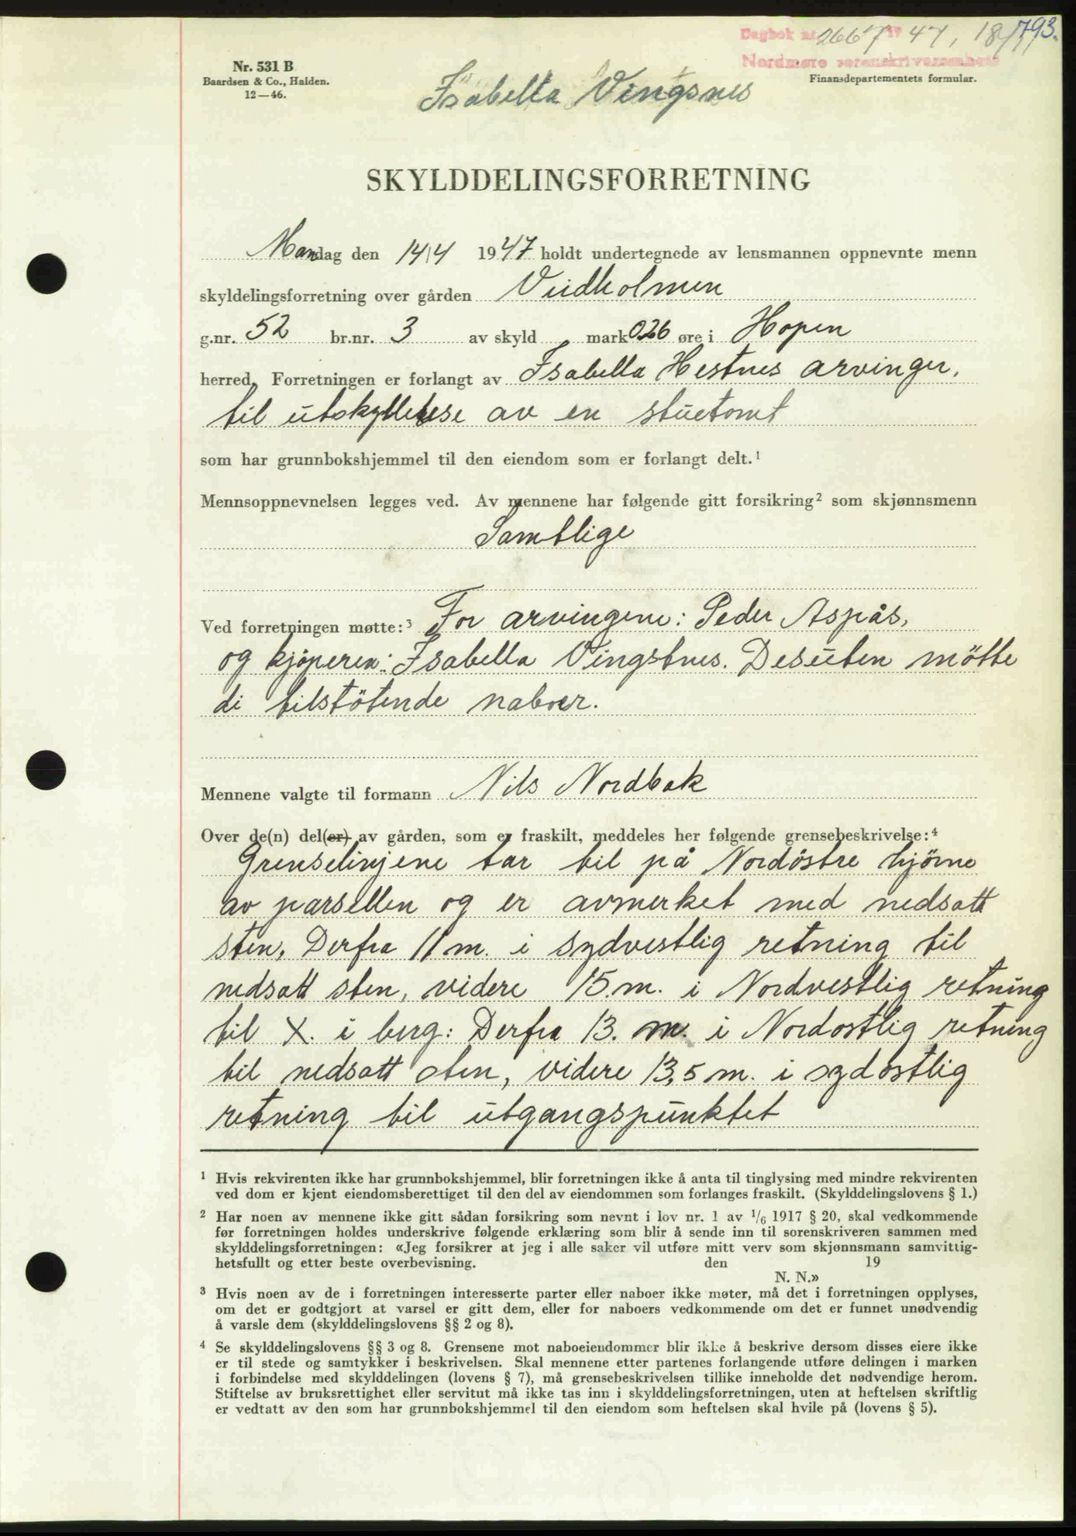 Dagbok nr. 2667 1947, 18/7 793.
Nordmøre sorenskriverembete
Nr. 531 B
Baardsen & Co., Halden.
12—46.
Finansdepartementets formular.
Isabella Vingsnes
SKYLDDELINGSFORRETNING
Mandag den 14/4 1947 holdt undertegnede av lensmannen oppnevnte menn
skyldelingsforretning over gården Veidholmen
g.nr. 52 br.nr. 3 av skyld mark 026 øre i Hopen
herred. Forretningen er forlangt av Isabella Hestnes arvinger,
til utskyllelse av en stuetomt
som har grunnbokshjemmel til den eiendom som er forlangt delt.¹
Mennsoppnevnelsen legges ved. Av mennene har følgende gitt forsikring² som skjønnsmenn
Samtlige
Ved forretningen møtte:³ For arvingene: Peder Aspås,
og kjøperen: Isabella Vingstnes. Desuten møtte
di tilstötende naboer.
Mennene valgte til formann Nils Nordbak
Over de(n) del(er) av gården, som er fraskilt, meddeles her følgende grensebeskrivelse:⁴
Grenselinjene tar til på Nordöstre hjörne
av parsellen og er avmerket med nedsatt
sten, Derfra 11 m. i sydvestlig retning til
nedsatt sten, videre 15. m. i Nordvestlig retning
til X. i berg: Derfra 13. m. i Nordostlig retning
til nedsatt sten, videre 13,5 m. i sydostlig
retning til utgangspunktet
¹ Hvis rekvirenten ikke har grunnbokshjemmel, blir forretningen ikke å anta til tinglysing med mindre rekvirenten
ved dom er kjent eiendomsberettiget til den del av eiendommen som forlanges fraskilt. (Skylddelingslovens § 1.)
² Har noen av mennene ikke gitt sådan forsikring som nevnt i lov nr. 1 av 1/6 1917 § 20, skal vedkommende
før forretningen holdes underskrive følgende erklæring som blir å sende inn til sorenskriveren sammen med
skylddelingsforretningen: «Jeg forsikrer at jeg i alle saker vil utføre mitt verv som skjønnsmann samvittig-
hetsfullt og etter beste overbevisning. den 19
N. N.»
³ Hvis noen av de i forretningen interesserte parter eller naboer ikke møter, må det i forretningen opplyses,
om det er godtgjort at varsel er gitt dem, eller for naboers vedkommende om det er funnet unødvendig
å varsle dem (skylddelingslovens §§ 2 og 8).
⁴ Se skylddelingslovens §§ 3 og 8. Grensene mot naboeiendommer blir ikke å beskrive dersom disses eiere ikke
er til stede og samtykker i beskrivelsen. Skal mennene etter partenes forlangende utføre delingen i marken
i forbindelse med skylddelingen (lovens § 7), må grensebeskrivelsen tillike inneholde det nødvendige herom.
Stiftelse av bruksrettighet eller servitut må ikke tas inn i skylddelingsforretningen, uten at heftelsen skriftlig
er vedtatt av den som har grunnbokshjemmel til den eiendom som heftelsen skal hvile på (lovens § 5).